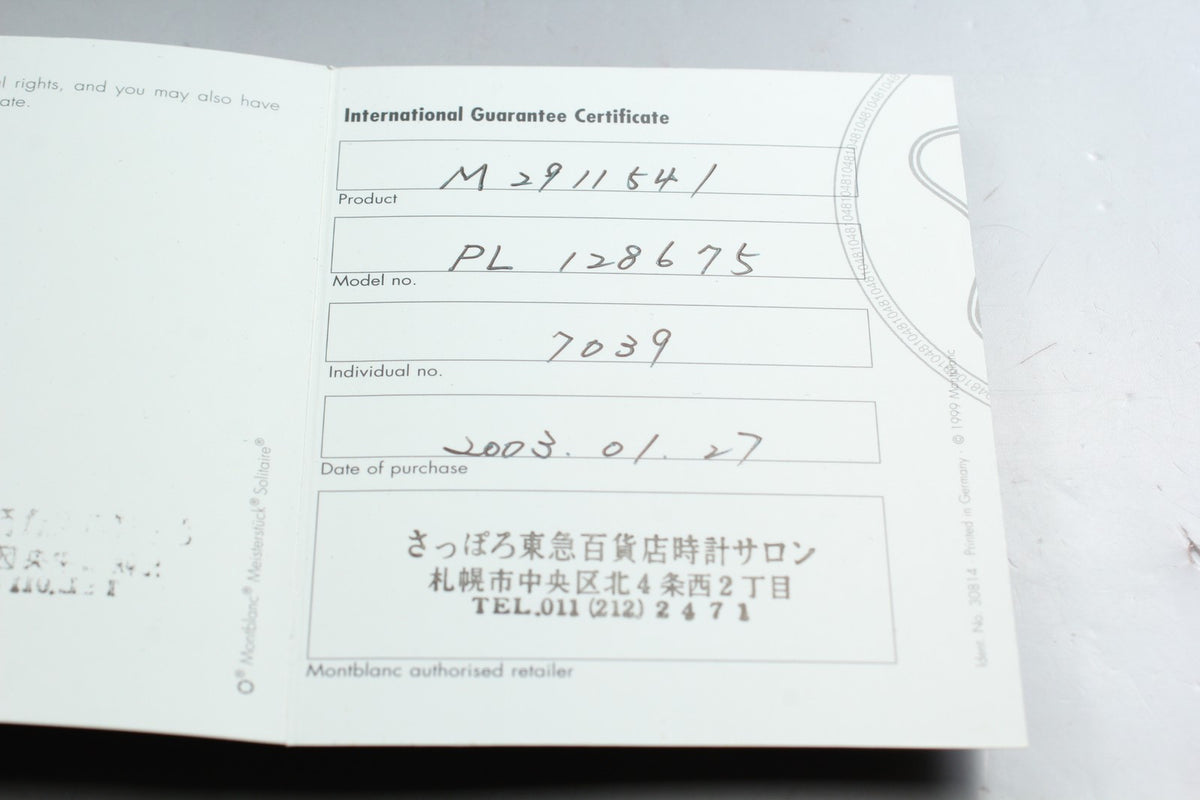 l rights, and you may also have
ate.
International Guarantee Certificate
M 2911541
Product
PL 128675
Model no.
7039
Individual no.
2003. 01. 27
Date of purchase
さっぽろ東急百貨店時計サロン
札幌市中央区北4条西2丁目
TEL.011 (212) 2471
Montblanc authorised retailer
® Montblanc® Meisterstück® Solitaire®
Ident. No. 30814 · Printed in Germany · © 1999 Montblanc
4810481048104810481048104810481048104810481